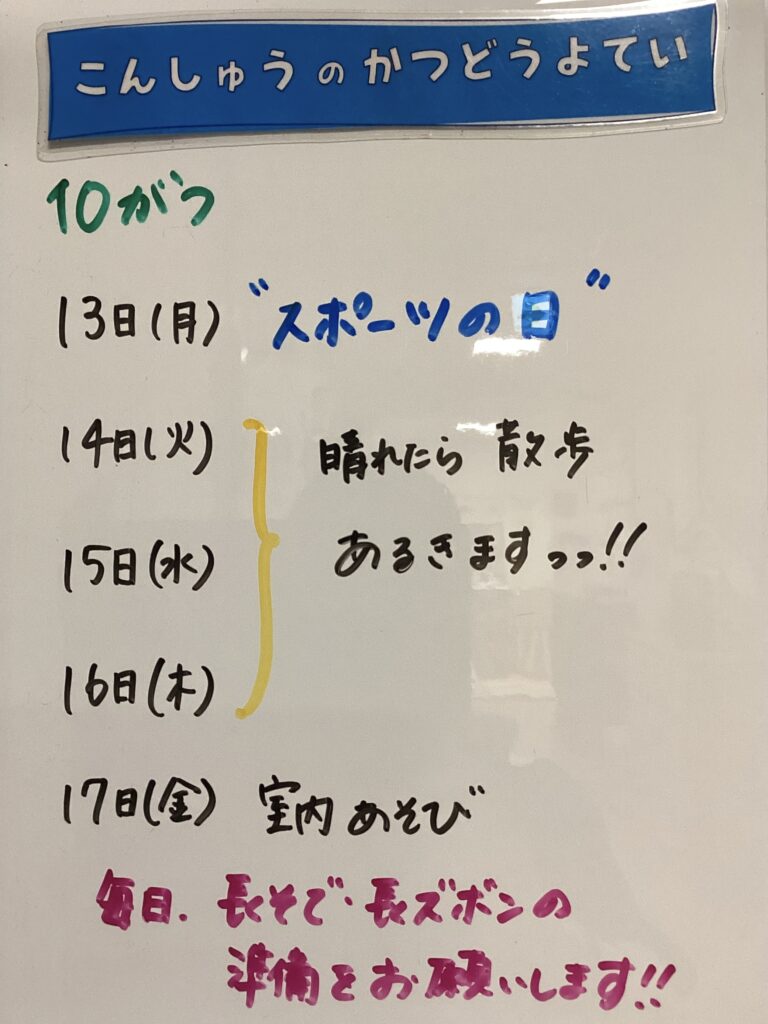 こんしゅうのかつどうよてい
10がつ
13日(月) "スポーツの日"
14日(火) 晴れたら 散歩
15日(水) あるきますっっ!!
16日(木)
17日(金) 室内あそび
毎日、長そで・長ズボンの
準備をお願いします!!